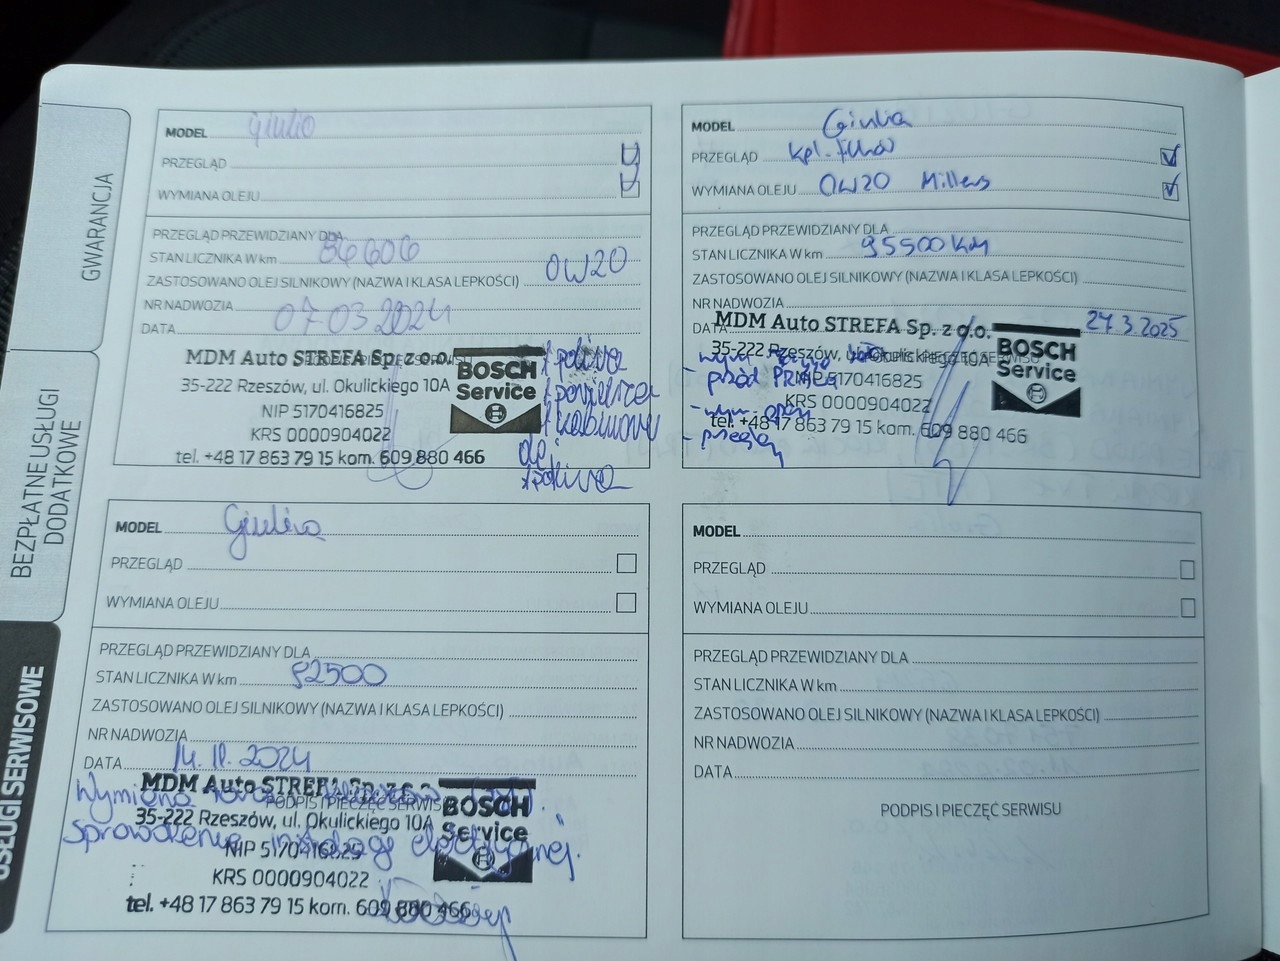 GWARANCJA
BEZPŁATNE USŁUGI
DODATKOWE
USŁUGI SERWISOWE
MODEL Giulia
PRZEGLĄD
WYMIANA OLEJU
PRZEGLĄD PRZEWIDZIANY DLA
STAN LICZNIKA W km 86606
ZASTOSOWANO OLEJ SILNIKOWY (NAZWA I KLASA LEPKOŚCI) 0W20
NR NADWOZIA
DATA 07.03.2024
MDM Auto STREFA Sp. z o.o.
35-222 Rzeszów, ul. Okulickiego 10A
NIP 5170416825
KRS 0000904022
tel. +48 17 863 79 15 kom. 609 880 466
BOSCH
Service
f paliwa
f powietrza
f kabinowy
olej
MODEL Giulia
PRZEGLĄD kpl. filtrów
WYMIANA OLEJU 0W20 Millers
PRZEGLĄD PRZEWIDZIANY DLA
STAN LICZNIKA W km 95500 KM
ZASTOSOWANO OLEJ SILNIKOWY (NAZWA I KLASA LEPKOŚCI)
NR NADWOZIA
DATA 27.3.2025
MDM Auto STREFA Sp. z o.o.
35-222 Rzeszów, Okulickiego 10A
NIP 5170416825
KRS 0000904022
tel. +48 17 863 79 15 kom. 609 880 466
BOSCH
Service
- przód PRAWA
- wym. opon
- przegląd
MODEL Giulia
PRZEGLĄD
WYMIANA OLEJU
PRZEGLĄD PRZEWIDZIANY DLA
STAN LICZNIKA W km 92500
ZASTOSOWANO OLEJ SILNIKOWY (NAZWA I KLASA LEPKOŚCI)
NR NADWOZIA
DATA 14.11.2024
MDM Auto STREFA Sp. z o.o.
PODPIS I PIECZĘĆ SERWISU
Wymiana
35-222 Rzeszów, ul. Okulickiego 10A
sprawdzenie instalacji elektrycznej.
NIP 5170416825
KRS 0000904022
tel. +48 17 863 79 15 kom. 609 880 466
BOSCH
Service
MODEL
PRZEGLĄD
WYMIANA OLEJU
PRZEGLĄD PRZEWIDZIANY DLA
STAN LICZNIKA W km
ZASTOSOWANO OLEJ SILNIKOWY (NAZWA I KLASA LEPKOŚCI)
NR NADWOZIA
DATA
PODPIS I PIECZĘĆ SERWISU